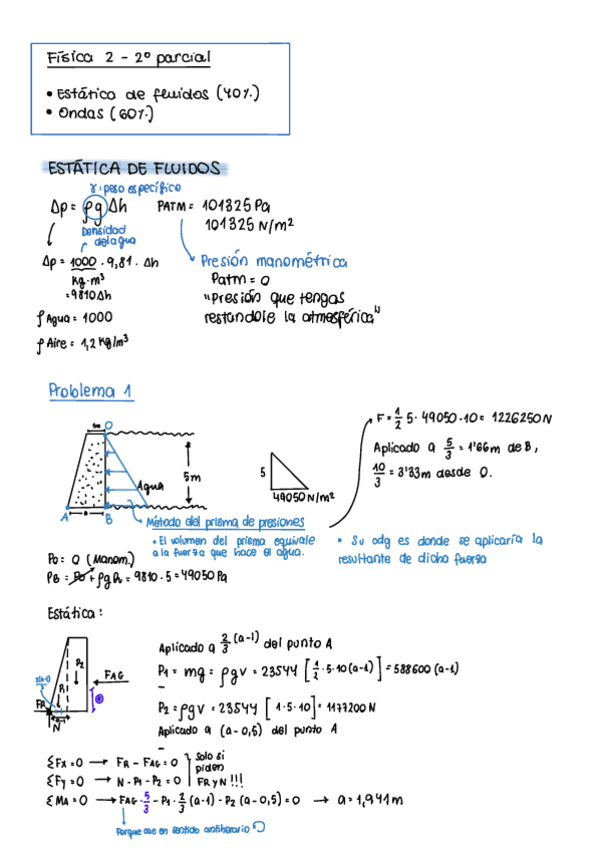 Física 2 - 2º parcial
• Estática de fluidos (40%)
• Ondas (60%)
ESTÁTICA DE FLUIDOS
γ: peso específico
Δp = ρg Δh
PATM = 101325 Pa
101325 N/m²
Densidad
del agua
Δp = 1000 · 9,81 · Δh
kg·m³
= 9810 Δh
ρ Agua = 1000
ρ Aire = 1,2 kg/m³
Presión manométrica
Patm = 0
"Presión que tengas
restandole la atmosférica"
Problema 1
1m
O
5m
Agua
A
a
B
5
49050 N/m²
F = 1/2 5 · 49050 · 10 = 1226250 N
Aplicado a 5/3 = 1'66m de B,
10/3 = 3'33m desde O.
Método del prisma de presiones
• El volumen del prisma equivale
a la fuerza que hace el agua.
• Su cdg es donde se aplicaría la
resultante de dicha fuerza
Po = 0 (Manom.)
PB = Po + ρgh = 9810 · 5 = 49050 Pa
Estática:
P2
P1
FAG
FR
N
a-1
Aplicado a 2/3 (a-1) del punto A
P1 = mg = ρgv = 23544 [1/2 · 5 · 10 (a-1)] = 588600 (a-1)
P2 = ρgv = 23544 [1 · 5 · 10] = 1177200 N
Aplicado a (a - 0,5) del punto A
ΣFx = 0 → FR - FAG = 0
ΣFy = 0 → N - P1 - P2 = 0
Solo si
piden
FR y N !!!
ΣMA = 0 → FAG · 5/3 - P1 · 2/3 (a-1) - P2 (a - 0,5) = 0 → a = 1,941 m
Porque cae en sentido antihorario